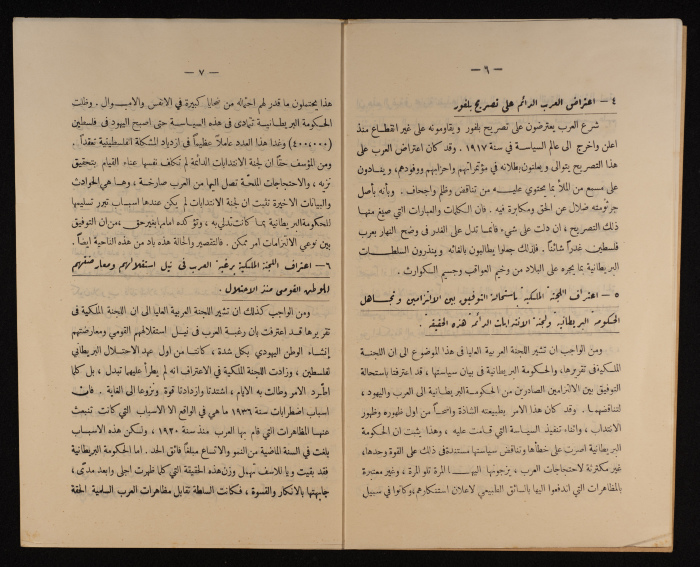 — ٦ —
٤ — اعتراض العرب الدائم على تصريح بلفور
شرع العرب يعترضون على تصريح بلفور ويقاومونه على غير انقطاع منذ
اعلن واخرج الى عالم السياسة في سنة ١٩١٧ . وقد كان اعتراض العرب على
هذا التصريح يتوالى ويعلنون بطلانه في مؤتمراتهم واحزابهم ووفودهم ، وينادون
على مسمع من الملأ بما يحتوي عليه من تناقض وظلم واجحاف . وبأنه بأصل
جرثومته ضلال عن الحق ومكابرة فيه . فان الكلمات والعبارات التي صيغ منها
ذلك التصريح ، ان دلت على شيء فانما تدل على الغدر في وضح النهار بعرب
فلسطين غدراً شائناً . فلذلك جعلوا يطالبون بالغائه وينذرون السلطات
البريطانية بما يجره على البلاد من وخيم العواقب وجسيم الكوارث .
٥ — اعتراف اللجنة الملكية باستحالة التوفيق بين الالتزامين وتجاهل
الحكومة البريطانية ولجنة الانتدابات الدائمة لهذه الحقيقة .
ومن الواجب ان تشير اللجنة العربية العليا في هذا الموضوع الى ان اللجنة
الملكية في تقريرها ، والحكومة البريطانية في بيان سياستها ، قد اعترفتا باستحالة
التوفيق بين الالتزامين الصادرين من الحكومة البريطانية الى العرب واليهود ،
لتناقضهما . وقد كان هذا الامر بطبيعته الشاذة واضحاً من اول ظهوره وظهور
الانتداب ، واثناء تنفيذ السياسة التي قامت عليه ، وهذا يثبت ان الحكومة
البريطانية اصرت على خطأها وتناقض سياستها مستندة في ذلك على القوة وحدها،
غير مكترثة لاحتجاجات العرب ، يزجونها اليها المرة تلو المرة ، وغير معتبرة
بالمظاهرات التي اندفعوا اليها بالسائق الطبيعي لاعلان استنكارهم، وكانوا في سبيل
— ٧ —
هذا يحتملون ما قدر لهم احتماله من ضحايا كبيرة في الانفس والاموال . وظلت
الحكومة البريطانية تتمادى في هذه السياسة حتى اصبح اليهود في فلسطين
(٤٠٠,٠٠٠) وغدا هذا العدد عاملاً عظيماً في ازدياد المشكلة الفلسطينية تعقداً .
ومن المؤسف حقاً ان لجنة الانتدابات الدائمة لم تكلف نفسها عناء القيام بتحقيق
نزيه ، والاحتجاجات الملحّة تصل اليها من العرب صارخة ، وها هي الحوادث
والبيانات الاخيرة تثبت ان لجنة الانتدابات لم يكن عندها اسباب تبرر تسليمها
للحكومة البريطانية بما كانت تدلي به ، وتؤكده امامها بغير حق ، من ان التوفيق
بين نوعي الالتزامات امر ممكن . فالتقصير والحالة هذه باد من هذه الناحية ايضاً .
٦ — اعتراف اللجنة الملكية برغبة العرب في نيل استقلالهم ومعارضتهم
للوطن القومي منذ الاحتلال .
ومن الواجب كذلك ان تشير اللجنة العربية العليا الى ان اللجنة الملكية في
تقريرها قد اعترفت بان رغبة العرب في نيل استقلالهم القومي ومعارضتهم
إنشاء الوطن اليهودي بكل شدة ، كانتا من اول عهد الاحتلال البريطاني
لفلسطين ، وزادت اللجنة الملكية في الاعتراف انه لم يطرأ عليهما تبدل ، بل كلما
اطّرد الامر وطالت به الايام ، اشتدتا وازدادتا قوة ونزوعا الى الغاية . فان
اسباب اضطرابات سنة ١٩٣٦ ما هي في الواقع الا الاسباب التي كانت تنبعث
عنها المظاهرات التي قام بها العرب منذ سنة ١٩٢٠ ، ولكن هذه الاسباب
بلغت في السنة الماضية من النمو والاتساع مبلغاً فائق الحد . اما الحكومة البريطانية
فقد بقيت ويا للاسف تهمل وزن هذه الحقيقة التي كلما ظهرت اجلى وابعد مدى ،
جابهتها بالانكار والقسوة ، فكانت السلطة تقابل مظاهرات العرب السلمية الحقة